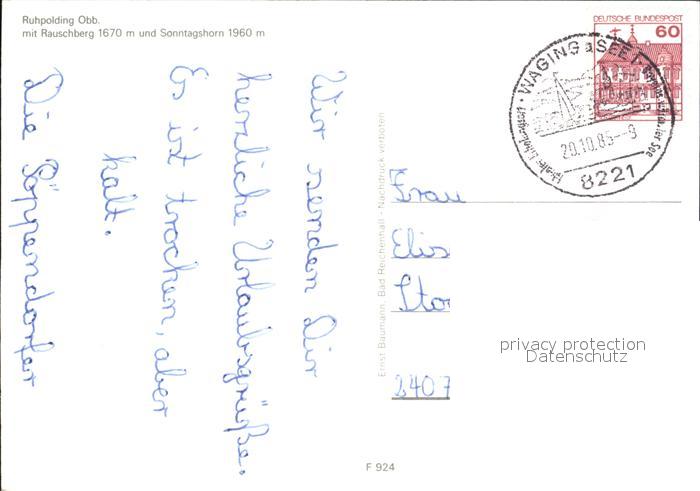 Ruhpolding Obb.
mit Rauschberg 1670 m und Sonntagshorn 1960 m
DEUTSCHE BUNDESPOST
60
WAGING a SEE 1
20.10.85--9
8221
Wir senden Dir
herzliche Urlaubsgrüße.
Es ist trocken, aber
kalt.
Die Söppendorfer
Ernst Baumann, Bad Reichenhall - Nachdruck verboten
Frau
Elis
Sto
2407
privacy protection
Datenschutz
F 924